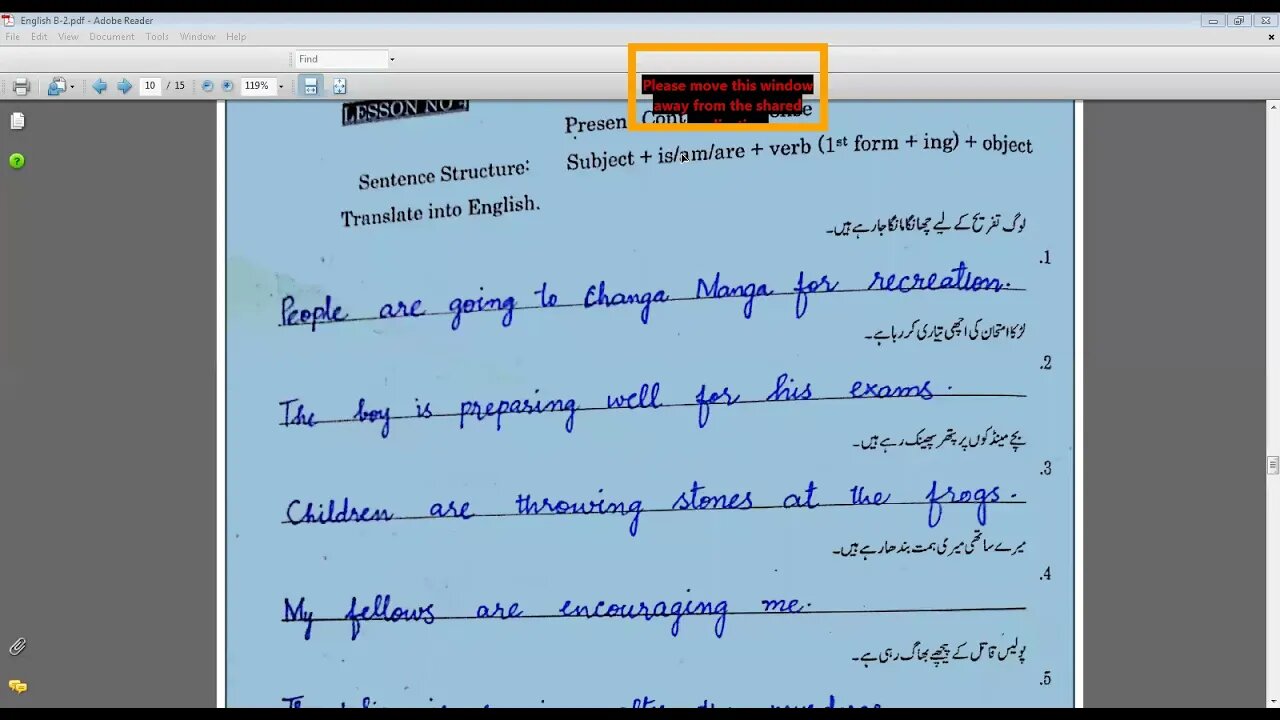 English B-2.pdf - Adobe Reader
File Edit View Document Tools Window Help
Find
10 / 15 119%
Please move this window
away from the shared
LESSON NO
Presen Cont
Sentence Structure: Subject + is/am/are + verb (1st form + ing) + object
Translate into English.
لوگ تفریح کے لیے چھانگا مانگا جا رہے ہیں۔
.1
People are going to Changa Manga for recreation.
لڑکا امتحان کی اچھی تیاری کر رہا ہے۔
.2
The boy is preparing well for his exams.
بچے مینڈکوں پر پتھر پھینک رہے ہیں۔
.3
Children are throwing stones at the frogs.
میرے ساتھی میری ہمت بندھا رہے ہیں۔
.4
My fellows are encouraging me.
پولیس قاتل کے پیچھے بھاگ رہی ہے۔
.5